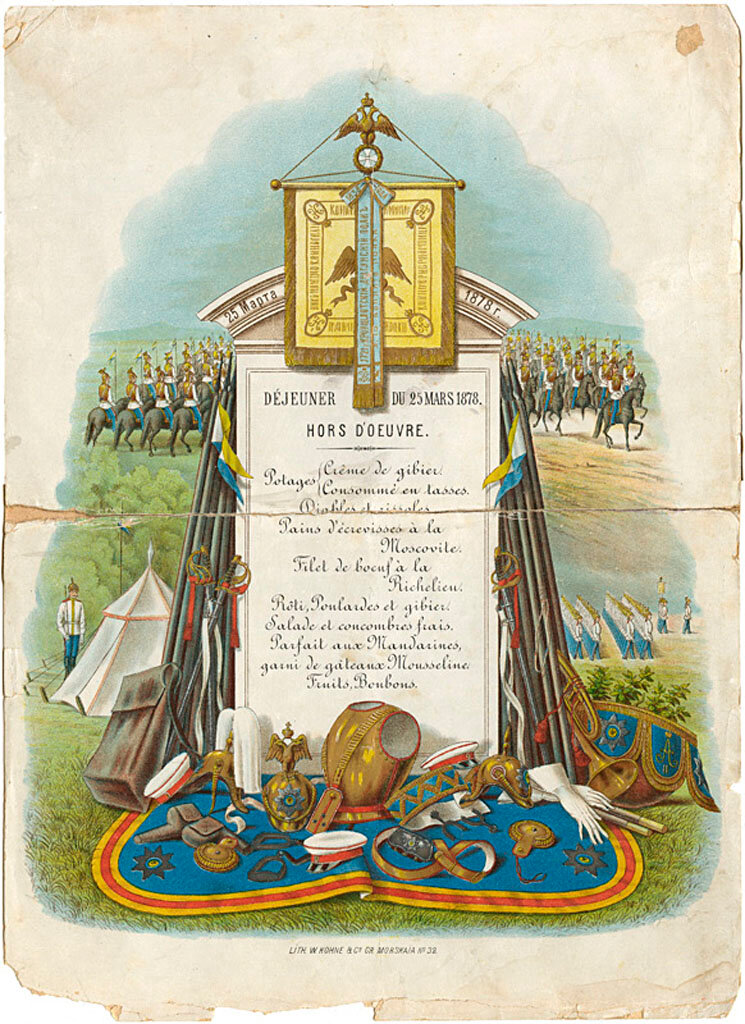 25 Марта 1878 г.
DÉJEUNER DU 25 MARS 1878.
HORS D'OEUVRE.
Potages Crême de gibier.
Consommé en tasses.
Diables et rissoles.
Pains d'écrevisses à la
Moscovite.
Filet de boeuf à la
Richelieu.
Rôti, Poulardes et gibier.
Salade et concombres frais.
Parfait aux Mandarines,
garni de gâteaux Mousseline.
Fruits, Bonbons.
LITH. W. KÖHNE & Cº GR. MORSKAIA Nº 39.